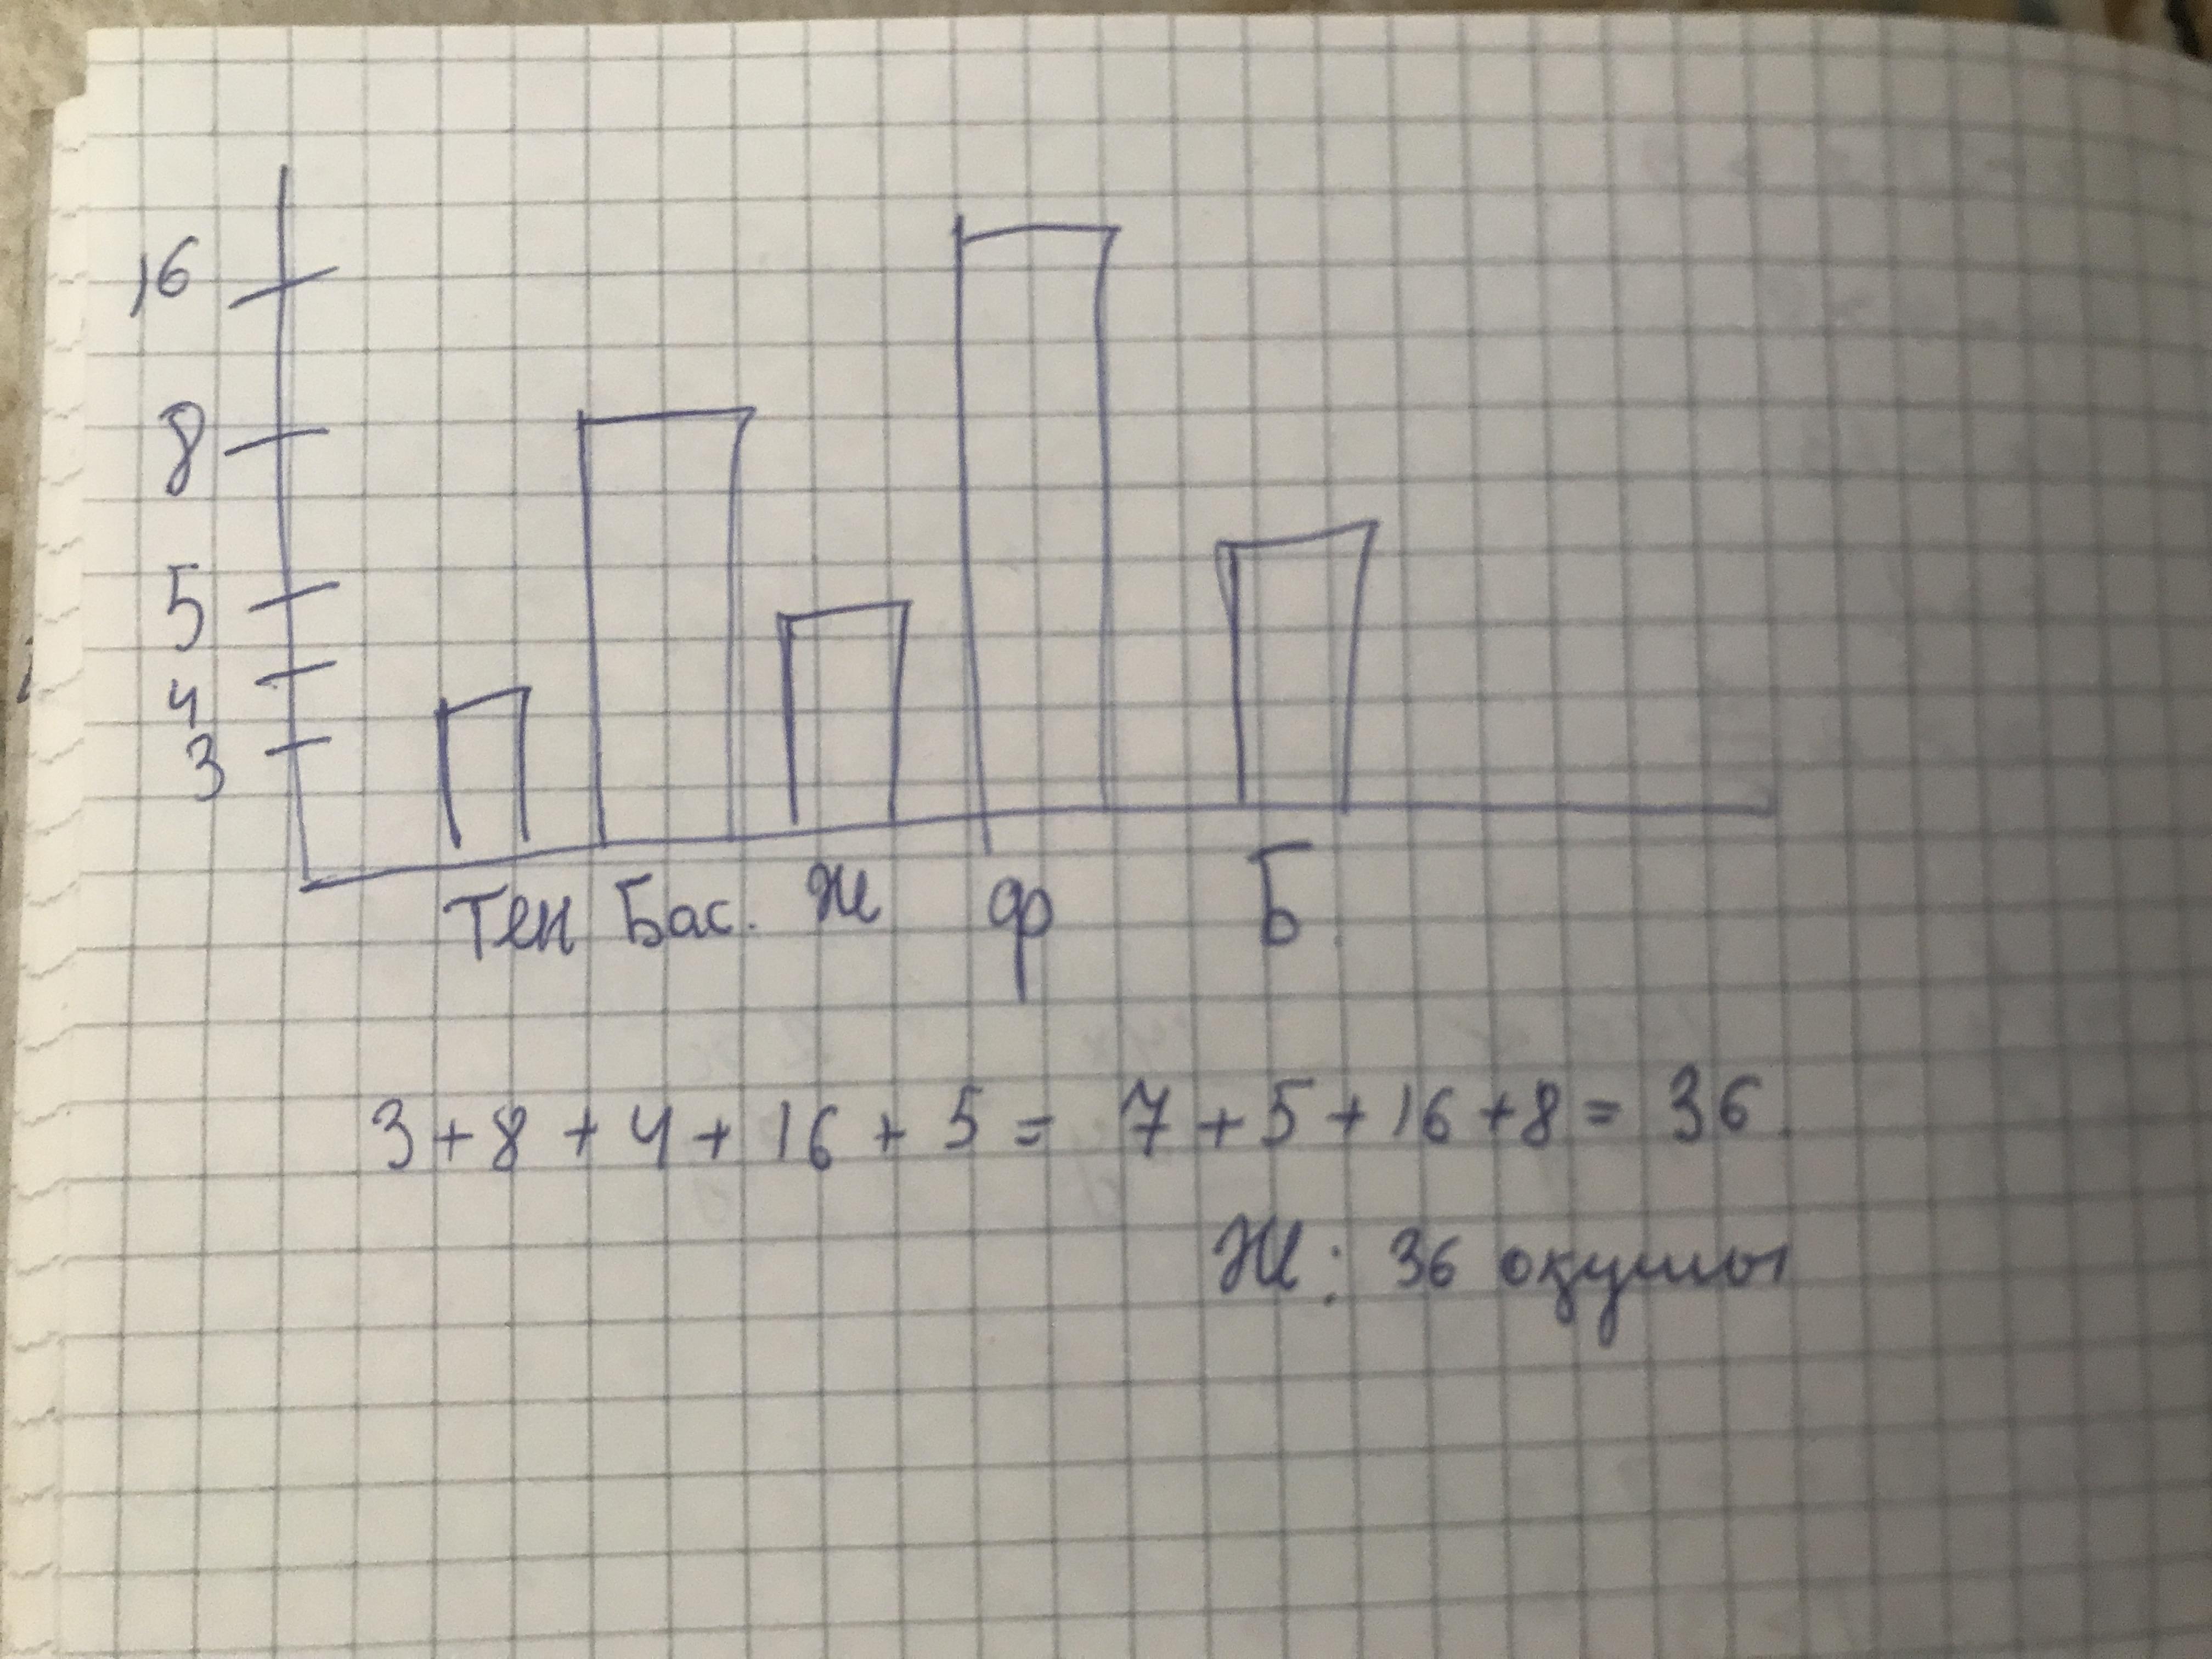 16
8
5
4
3
Тен Бас. Ж Ф Б
3+8+4+16+5= 7+5+16+8= 36.
Ж: 36 оқушы